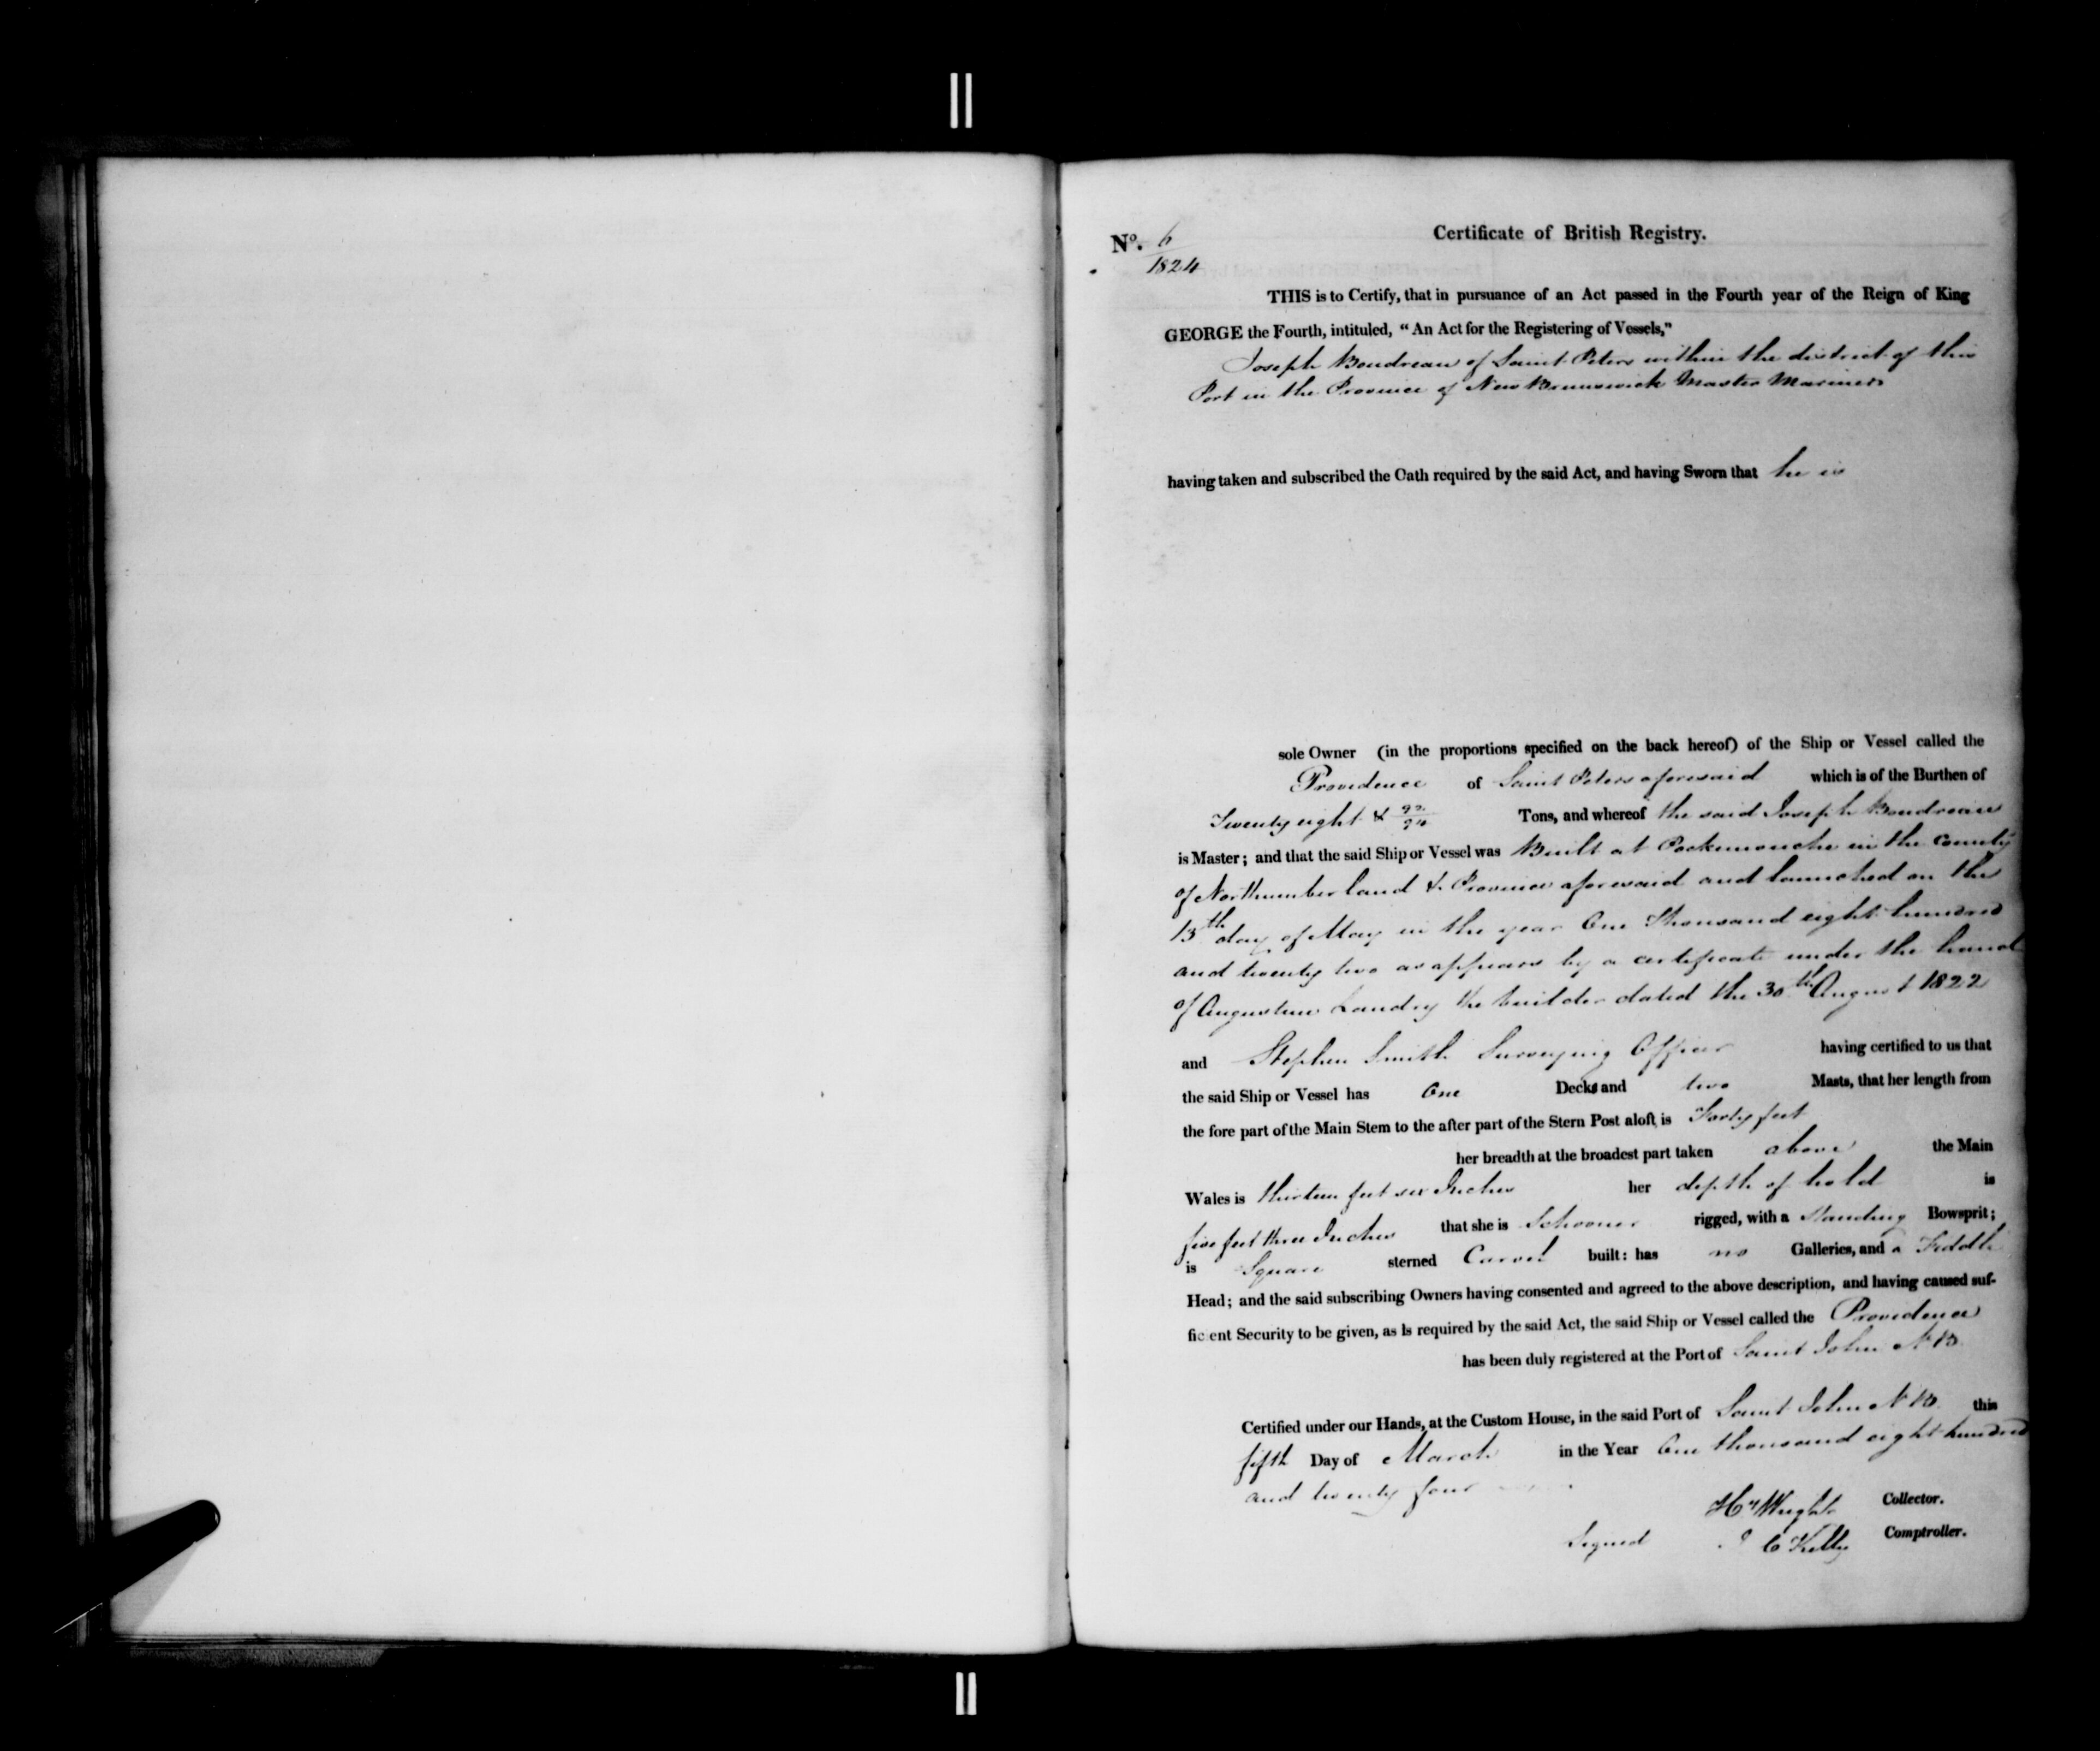 Certificate of British Registry.
Nº. 6
1824
THIS is to Certify, that in pursuance of an Act passed in the Fourth year of the Reign of King
GEORGE the Fourth, intituled, “An Act for the Registering of Vessels,”
Joseph Boudreau of Saint Peters within the district of this
Port in the Province of New Brunswick Master Mariner
having taken and subscribed the Oath required by the said Act, and having Sworn that he is
sole Owner (in the proportions specified on the back hereof) of the Ship or Vessel called the
Providence of Saint Peters aforesaid which is of the Burthen of
Twenty eight & 92/94 Tons, and whereof the said Joseph Boudreau
is Master; and that the said Ship or Vessel was Built at Pockmouche in the County
of Northumberland & Province aforesaid and launched on the
15th day of May in the year One Thousand eight hundred
and twenty two as appears by a certificate under the hand
of Augustin Landry the builder dated the 30th August 1822
and Stephen Smith Surveying Officer having certified to us that
the said Ship or Vessel has One Decks and two Masts, that her length from
the fore part of the Main Stem to the after part of the Stern Post aloft, is Forty feet
her breadth at the broadest part taken above the Main
Wales is thirteen feet six Inches her depth of hold is
five feet three Inches that she is Schooner rigged, with a standing Bowsprit;
is Square sterned Carvel built: has no Galleries, and a Fiddle
Head; and the said subscribing Owners having consented and agreed to the above description, and having caused suf-
ficient Security to be given, as is required by the said Act, the said Ship or Vessel called the Providence
has been duly registered at the Port of Saint John NB
Certified under our Hands, at the Custom House, in the said Port of Saint John NB. this
fifth Day of March in the Year One thousand eight hundred
and twenty four
Hy Wright Collector.
Signed C Kelly Comptroller.